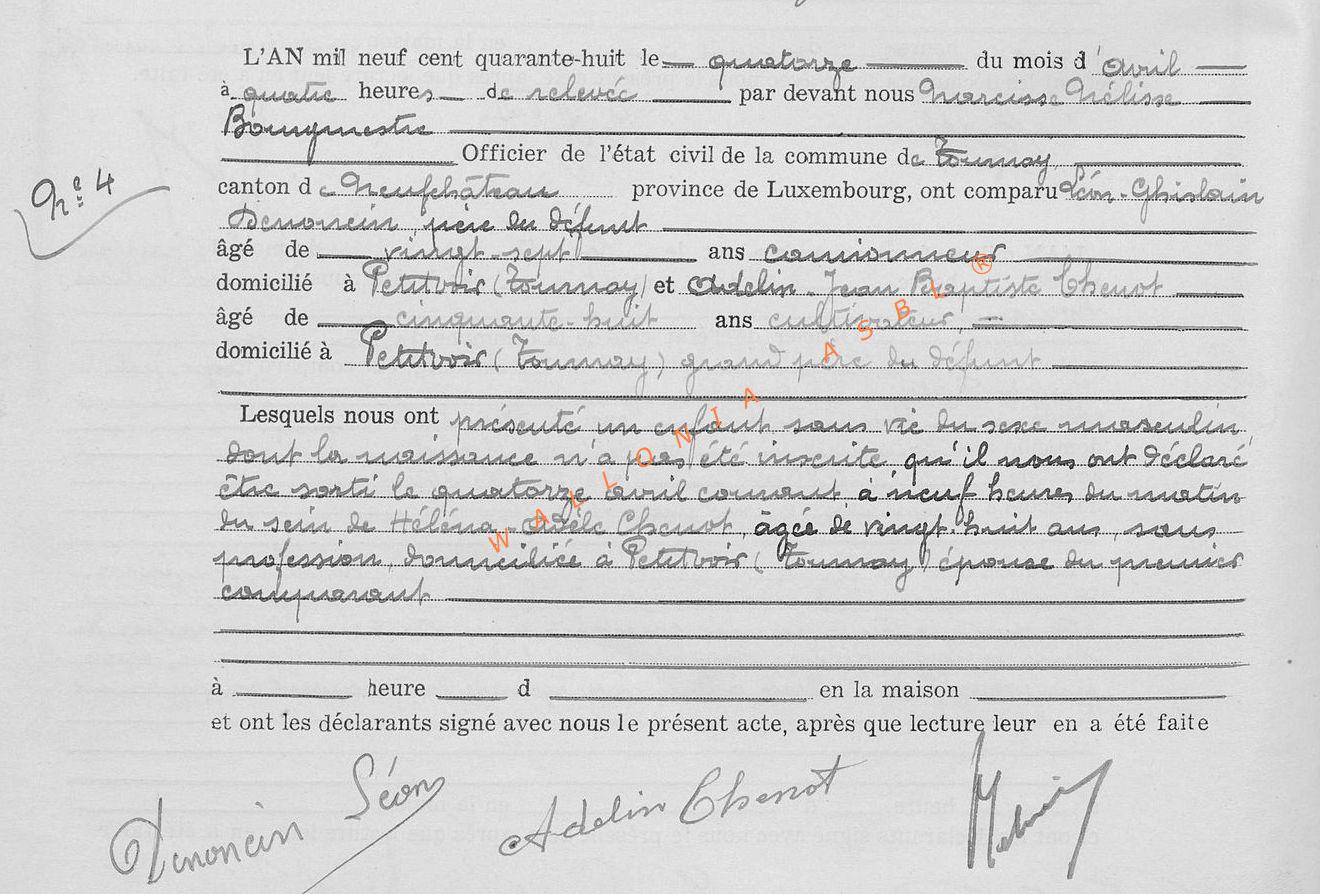 L'AN mil neuf cent quarante-huit le quatorze du mois d'avril
à quatre heures de relevée par devant nous Narcisse Mélisse
Officier de l'état civil de la commune de Tournay
N° 4
canton de Neufchâteau province de Luxembourg, ont comparu Léon-Ghislain
Denoncin, père du défunt
âgé de vingt-sept ans camionneur
domicilié à Petitvoir (Tournay) et Adelin-Jean Baptiste Chenot
âgé de cinquante-huit ans cultivateur,
domicilié à Petitvoir (Tournay) grand père du défunt
Lesquels nous ont présenté un enfant sans vie du sexe masculin
dont la naissance n'a pas été inscrite, qu'il nous ont déclaré
être sorti le quatorze avril courant à neuf heures du matin
du sein de Héléna-Adèle Chenot, âgée de vingt-huit ans, sans
profession, domiciliée à Petitvoir (Tournay) épouse du premier
comparant
à heure d en la maison
et ont les déclarants signé avec nous le présent acte, après que lecture leur en a été faite
Denoncin Léon
Adelin Chenot
WALLONIA ASBL ®